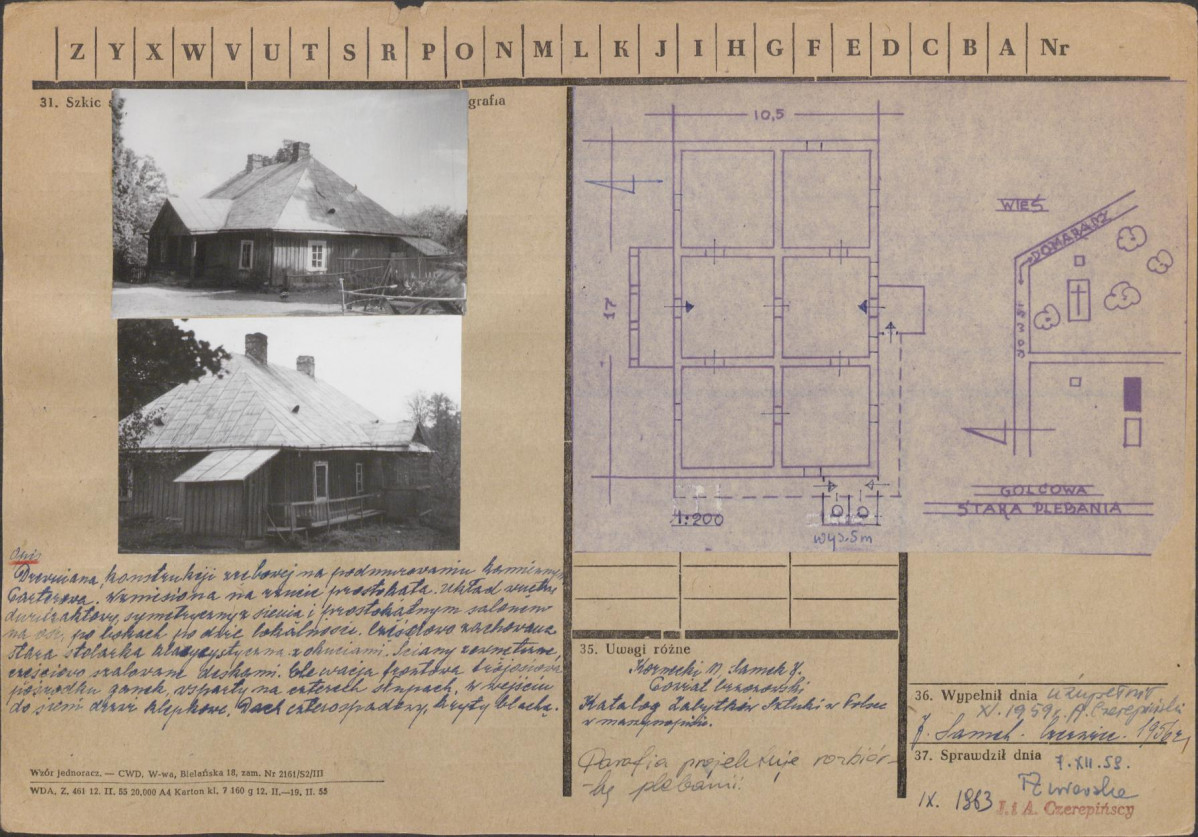 Z Y X W V U T S R P O N M L K J I H G F E D C B A Nr
31. Szkic
grafia
10,5
17
1:200
wys. 5m
WIEŚ
DOMARADZ
GOLCOWA
STARA PLEBANIA
Opis
Drewniana, konstrukcji zrębowej na podmurowaniu kamiennym
Parterowa. Wzniesiona na rzucie prostokąta. Układ wnętrz
dwutraktowy, symetryczny z sienią i prostokątnym salonem
na osi, po bokach po dwie lokalności. Częściowo zachowana
stara stolarka klasycystyczna z okuciami. Ściany zewnętrzne,
częściowo szalowane deskami. Elewacja frontowa trójosiowa
pośrodku ganek, wsparty na czterech słupach, w wejściu
do sieni drzwi klepkowe. Dach czterospadowy, kryty blachą.
35. Uwagi różne
Kornecki M. Samek J.
Katalog Zabytków Sztuki w Polsce
w manuskrypcie.
Parafia projektuje rozbiór-
kę plebanii.
36. Wypełnił dnia
XI. 1959 r. A. Czerepiński
J. Samek. Czerwiec. 1956 r,
37. Sprawdził dnia
7.XII.59.
IX. 1963
I. i A. Czerepińscy
Wzór jednoracz. — CWD. W-wa, Bielańska 18, zam. Nr 2161/S2/III
WDA. Z. 461 12. II. 55 20,000 A4 Karton kl. 7 160 g 12. II.—19. II. 55